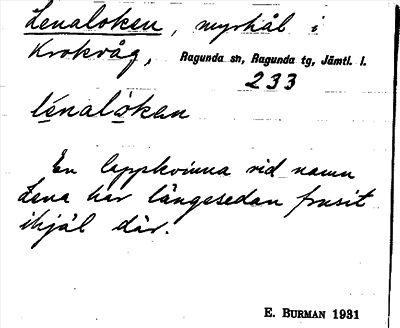 Lenaloken, myrhål i
Krokvåg, Ragunda sn, Ragunda tg, Jämtl. l.
233
lénalòkan
En lappkvinna vid namn
Lena har längesedan frusit
ihjäl där.
E. BURMAN 1931